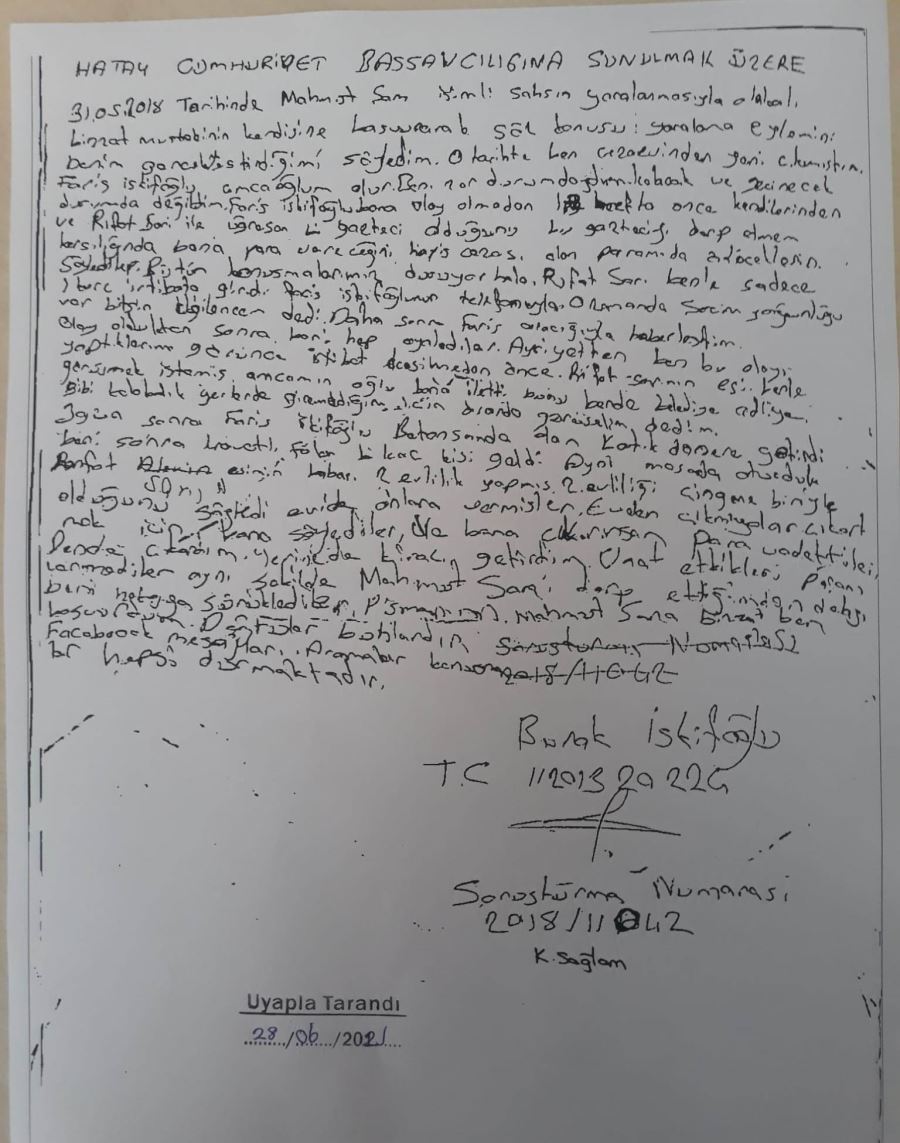 HATAY CUMHURİYET BASSAVCILIGINA SUNULMAK ÜZERE
31.05.2018 Tarihinde Mahmut Sarı isimli sahsın yaralanmasıyla alakalı,
Bizzat muhatabının kendisine basvurarak söz konusu yaralama eylemini
benim gerceklestirdiğimi söyledim. O tarihte ben cezaevinden yeni cıkmıstım.
Faris istifoğlu amcaoğlum olur. Ben zor durumdaydım. kalacak ve gecinecek
durumda değildim. Faris istifoğlu bana olay olmadan 1 hafta önce kendilerinden
ve Rıfat Sarı ile ugrasan bi gazteci olduğunu bu gazteciyi darp etmem
karsılığında bana para vereceğini, hapis cezası alan paramıda ödicellerin
Söylediler. Bütün konusmalarımız duruyor hala. Rıfat Sarı benle sadece
1 kere irtibata girdi faris istifoğlunun telefonuyla. O zamanda Secim yorgunluğu
var bitsin ilgilencem dedi. Daha sonra Faris aracığıyla haberlestim.
Olay olduktan sonra beni hep oyaladılar. Ayriyetten ben bu olayı
yaptıklarını görünce irtibat kesilmeden önce Rıfat sarının esi benle
görüsmek istemis amcamın oğlu bana iletti bunu bende belediye adliye
gibi kalabalık yerlerde giremediğim icin dısarda görüselim dedim.
3 gün sonra Faris istifoğlu Batansında olan Katık dönere getirdi
beni sonra falan bi kac kisi geldi. Aynı masada oturduk
Rıfat Sarı, esinin 2 evlilik yapmıs 2. evliliği cingene biriyle
olduğunu söyledi evide onlara vermisler. Evden cıkmıyolar cıkart
mak icin bana söylediler, ve bana cıkarırsan para vadettiler,
Bende cıkardım. yerinede kiracı getirdim. Vaat ettikleri parayı
vermediler aynı sekilde Mahmut Sarı'yı darp ettiğimden dolayı
beni hataya sürüklediler. Pismanım, Mahmut Sarıya Bizzat ben
basvurdum.
Facebook mesajları, Aramalar konusma
lar hepsi durmaktadır.
Sorusturma Numarası
2018/11042
Burak İstifoğlu
T.C 112013 20 224
Sorustürma Numarası
2018/11042
K.Sağlam
Uyapla Tarandı
28/06/2021